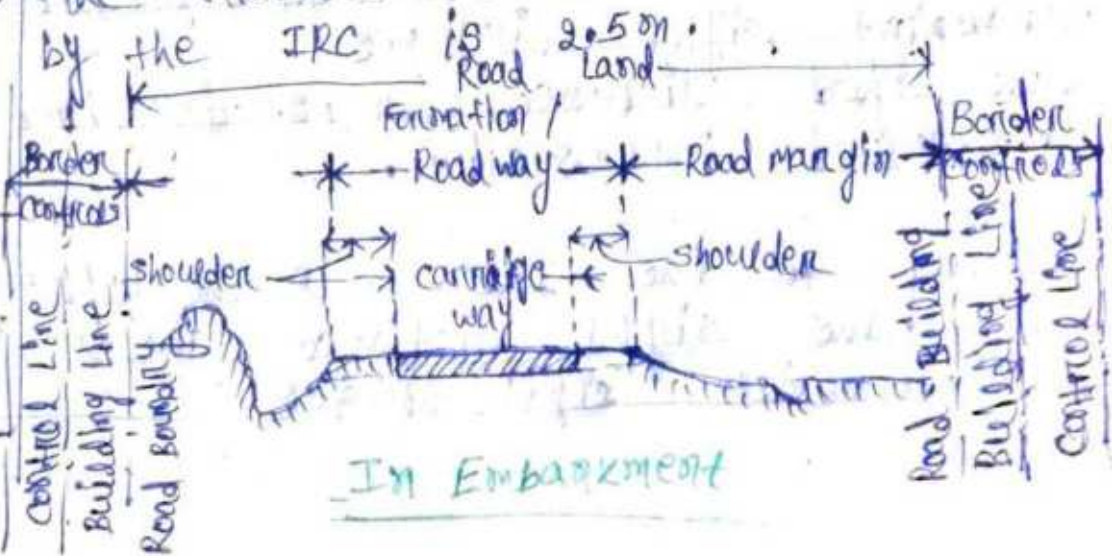 by the IRC is 2.5m.
Road Land
Formation /
Border controls
Roadway
Road margin
Border controls
shoulder
carriage way
shoulder
Control Line
Building Line
Road Boundry
Road Building
Building Line
Control Line
In Embankment